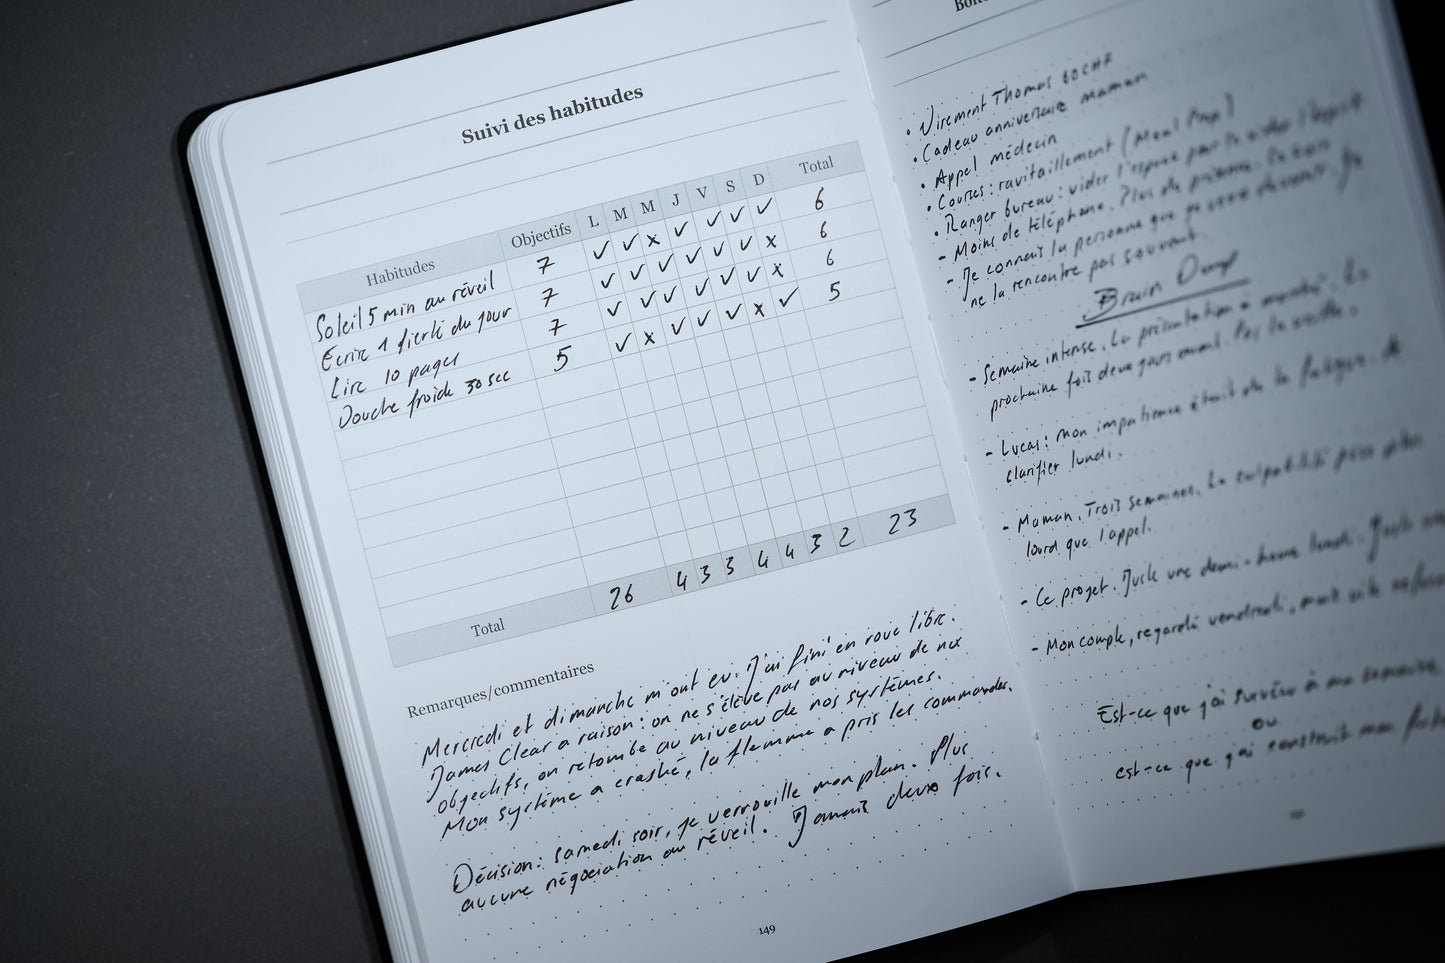 Suivi des habitudes
Habitudes Objectifs L M M J V S D Total
Soleil 5 min au réveil 7 ✓ ✓ x ✓ ✓ ✓ ✓ 6
Ecrire 1 fierté du jour 7 ✓ ✓ ✓ ✓ ✓ ✓ x 6
Lire 10 pages 7 ✓ ✓ ✓ ✓ ✓ ✓ x 6
Douche froide 30 sec 5 ✓ x ✓ ✓ ✓ x ✓ 5
Total 26 4 3 3 4 4 3 2 23
Remarques/commentaires
Mercredi et dimanche m'ont eu. J'ai fini en roue libre.
James Clear a raison : on ne s'élève pas au niveau de nos
objectifs, on retombe au niveau de nos systèmes.
Mon système a crashé, la flemme a pris les commandes.
Décision : samedi soir, je verrouille mon plan. Plus
aucune négociation au réveil. Jamais deux fois.
149
• Virement Thomas 60 CHF
• Cadeau anniversaire maman
• Appel médecin
• Courses : ravitaillement (Meal Prep)
• Ranger bureau : vider l'espace pour vider l'esprit
- Moins de téléphone. Plus de présence.
- Je connais la personne que je veux devenir. Je
ne la rencontre pas souvent.
Brain Dump
- Semaine intense. La présentation a
prochaine fois deux jours avant. Pas la veille.
- Lucas : mon impatience était de la fatigue. A
clarifier lundi.
- Maman. Trois semaines. La culpabilité pèse plus
lourd que l'appel.
- Ce projet. Juste une demi-heure lundi. Juste
- Mon compte, regardé vendredi, mais
Est-ce que j'ai survécu à ma semaine
ou
est-ce que j'ai construit mon